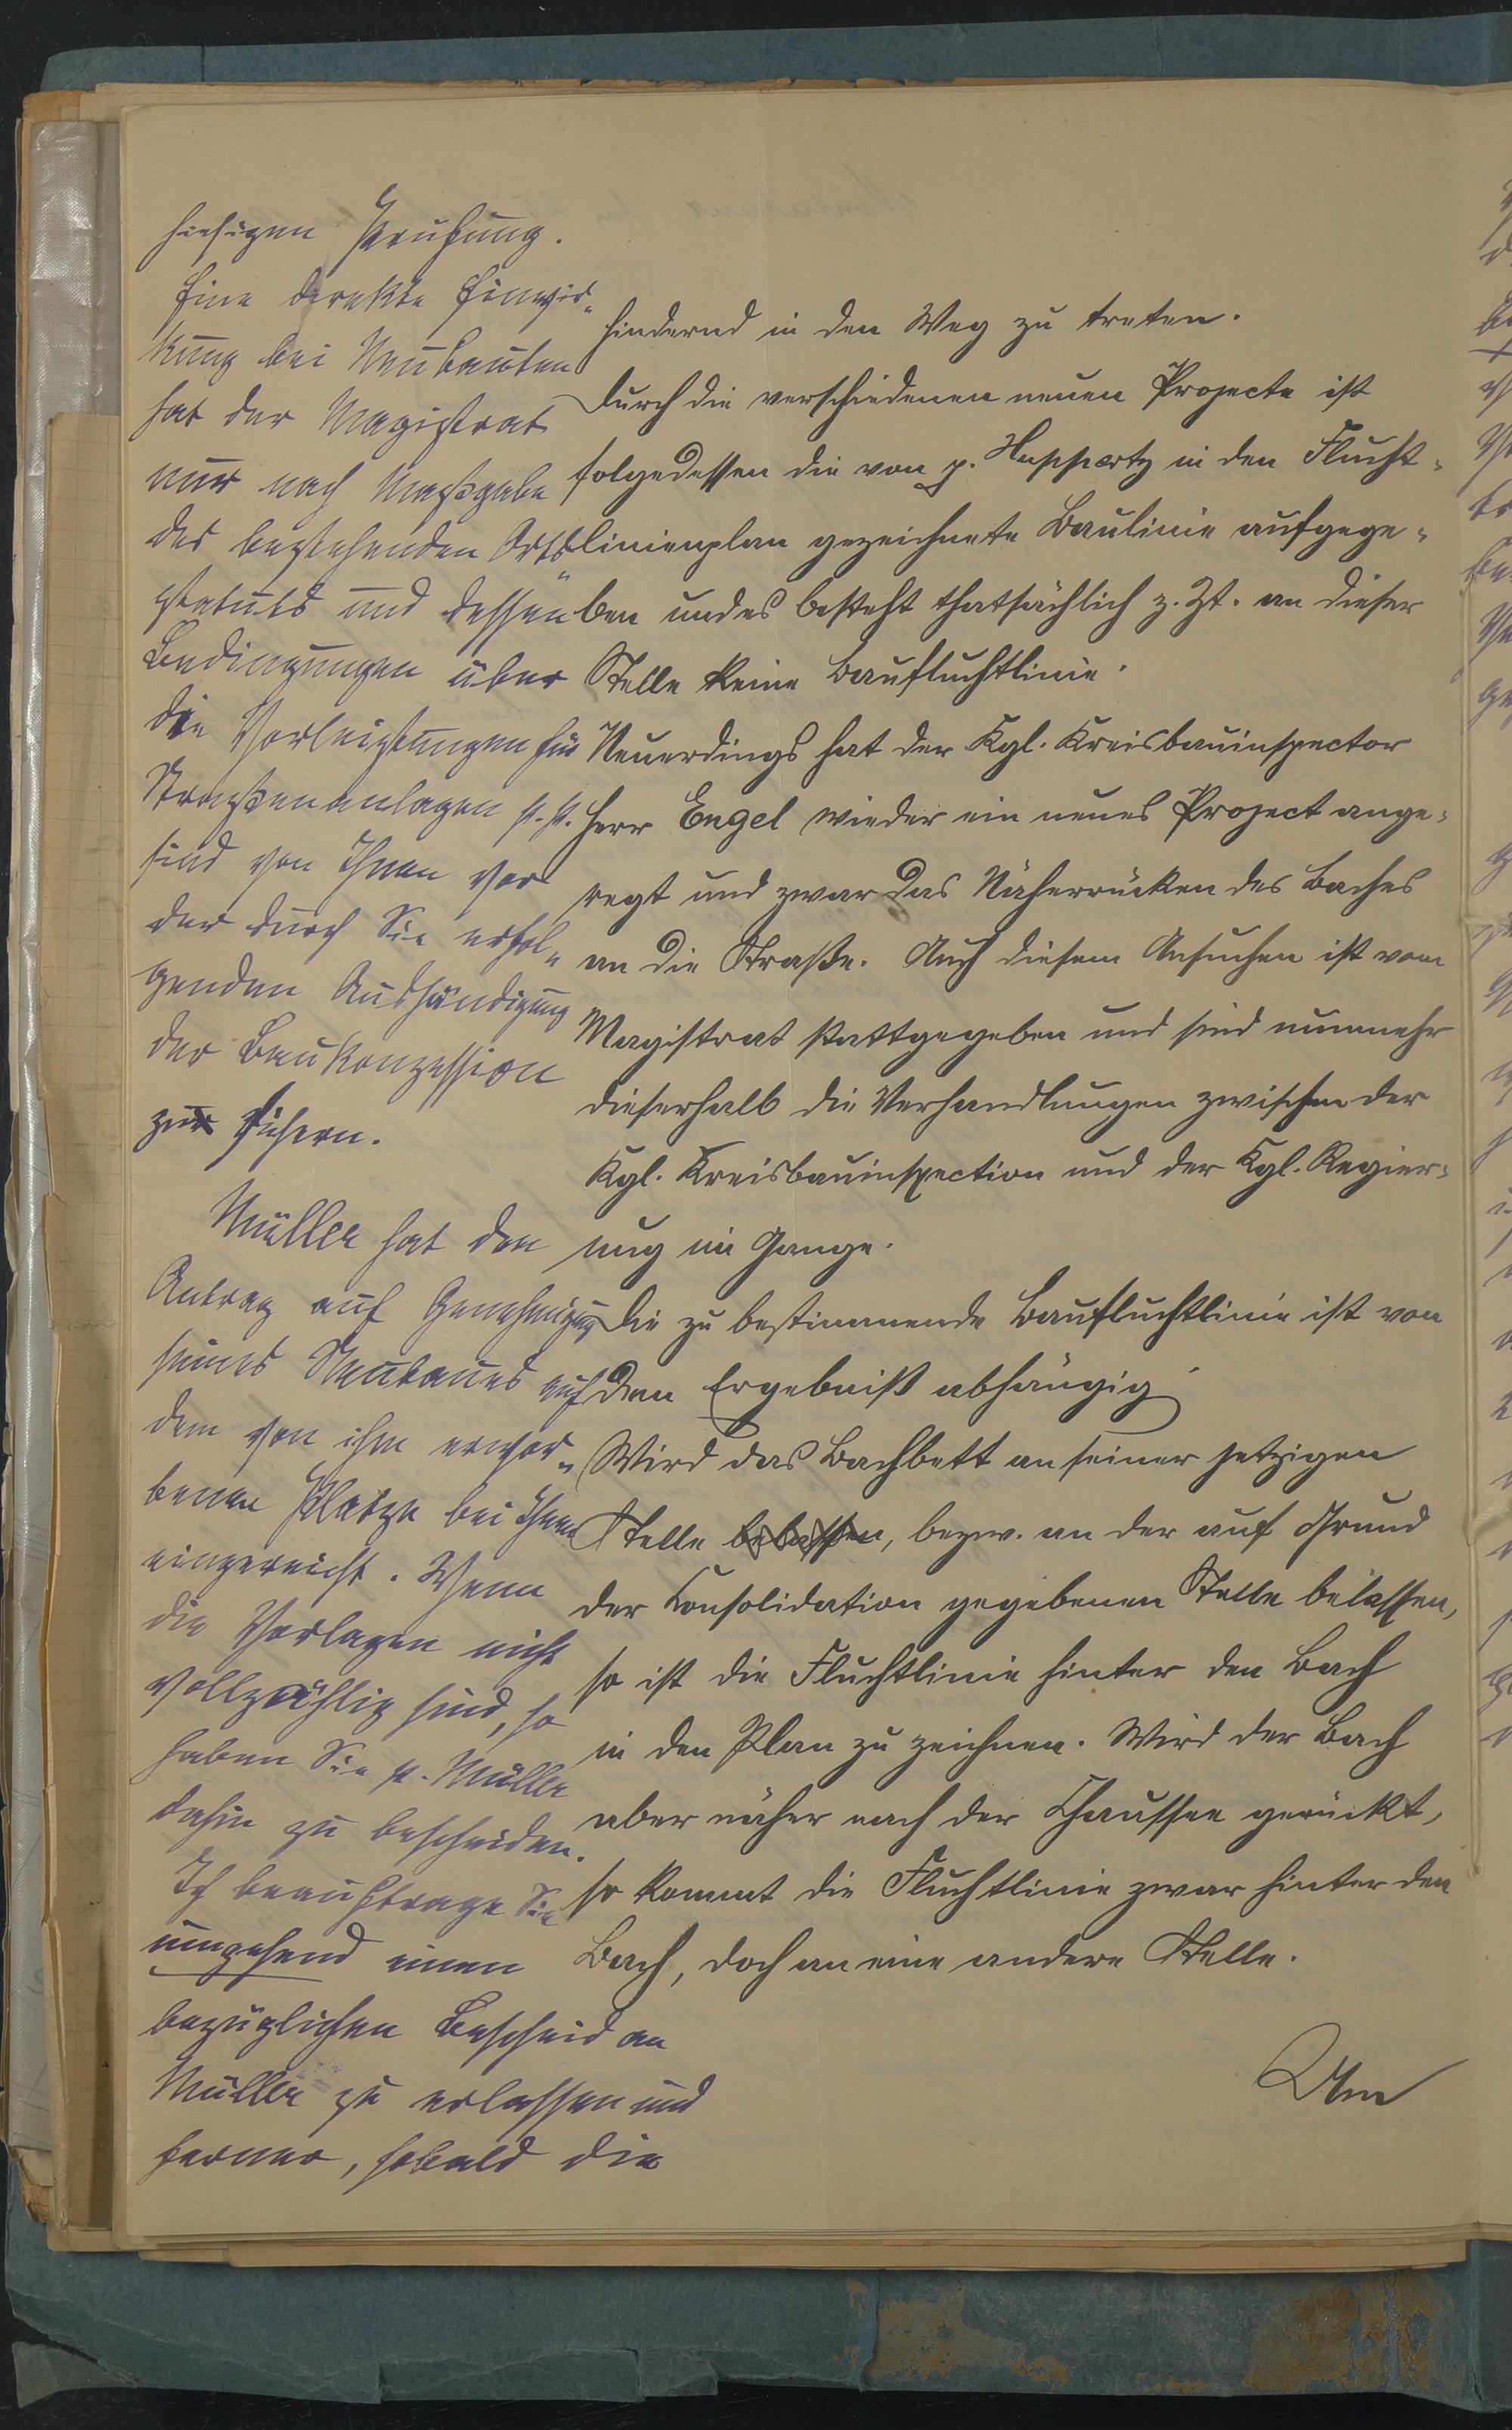 hiesigen Prüfung.
Eine direkte Einwir-
kung bei Neubauten
hat der Magistrat
nur nach Maßgabe
des bestehenden Orts-
statuts und dessen
Bedingungen über
die Vorleistungen für
Straßenanlagen p.p.
sind von Ihnen vor
der durch Sie erfol-
genden Aushändigung
der Baukonzession
zu sichern.
Müller hat den
Antrag auf Genehmigung
seines Neubaues auf
dem von ihm erwor-
benen Platze bei Ihnen
eingereicht. Wenn
die Vorlagen nicht
vollzählig sind, so
haben Sie p. Müller
dahin zu bescheiden.
Ich beauftrage Sie
umgehend einen
bezüglichen Bescheid an
Müller zu erlassen und
ferner, sobald die
hindernd in den Weg zu treten.
Durch die verschiedenen neuen Projecte ist
folgedessen die von p. Huppertz in den Flucht-
linienplan gezeichnete Baulinie aufgege-
ben und es besteht thatsächlich z. Zt. an dieser
Stelle keine Baufluchtlinie.
Neuerdings hat der Kgl. Kreisbauinspector
Herr Engel wieder ein neues Project ange-
regt und zwar das Näherrücken des Baches
an die Straße. Auch diesem Ansuchen ist vom
Magistrat stattgegeben und sind nunmehr
dieserhalb die Verhandlungen zwischen der
Kgl. Kreisbauinspection und der Kgl. Regier-
ung im Gange.
Die zu bestimmende Baufluchtlinie ist von
dem Ergebniß abhängig
Wird das Bachbett an seiner jetzigen
Stelle belassen, bezw. an der auf Grund
der Consolidation gegebenen Stelle belassen,
so ist die Fluchtlinie hinter den Bach
in den Plan zu zeichnen. Wird der Bach
aber näher nach der Chaussee gerückt,
so kommt die Fluchtlinie zwar hinter den
Bach, doch an eine andere Stelle.